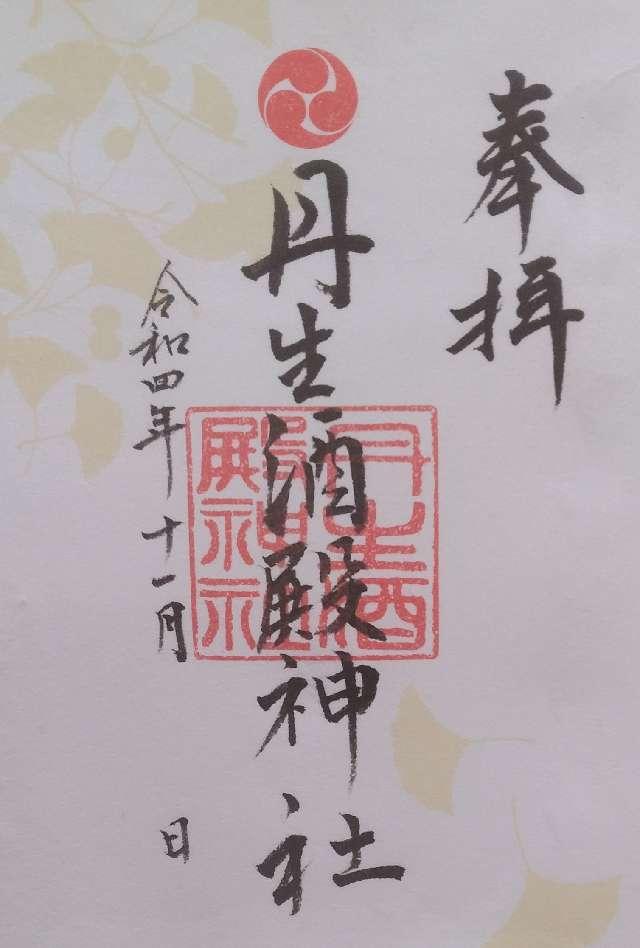 奉拝
丹生酒殿神社
丹生酒
殿神社
令和四年十一月 日